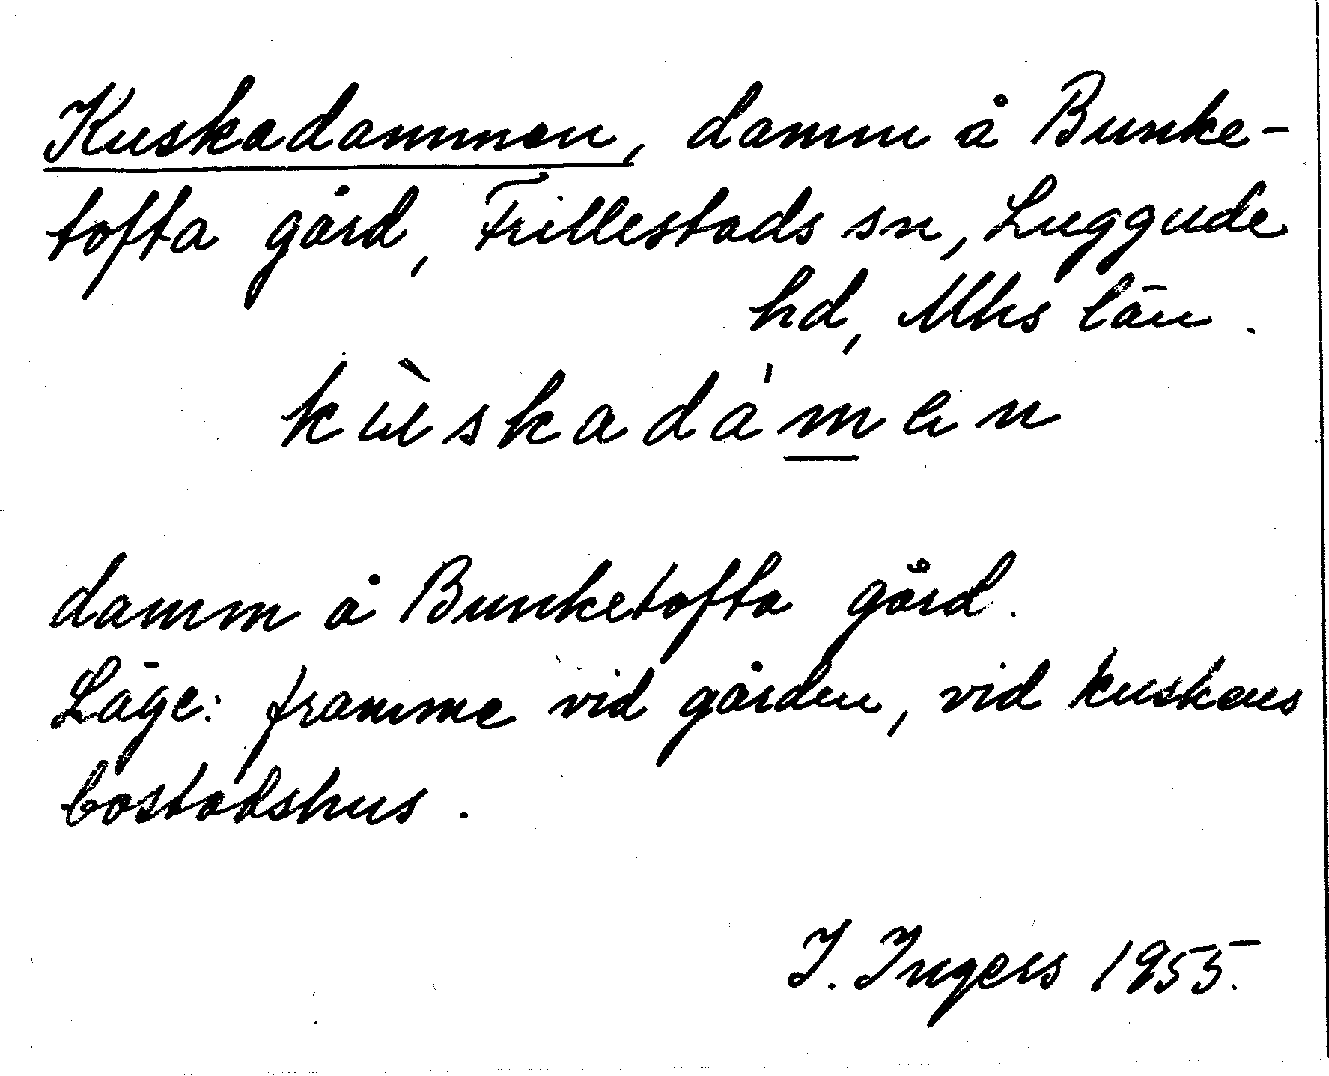 Kuskadammen, damm å Bunke-
tofta gård, Frillestads sn, Luggude
hd, Mhs län.
kùskadám̲ən
damm å Bunketofta gård.
Läge: framme vid gården, vid kuskens
bostadshus.
I. Ingers 1955.